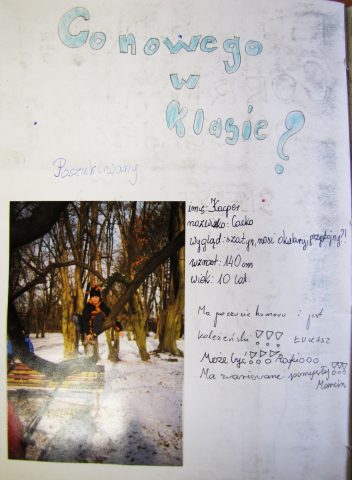 Co nowego
w
Klasie?
Poszukiwany
imię: Kacper
nazwisko: Cacko
wygląd: szatyn, nosi okulary, przystojny?!
wzrost: 140 cm
wiek: 10 lat.
Ma poczucie humoru i jest
koleżeński !!! ŁUKASZ
Może być !!!!
Ma zwariowane pomysły !!!
Marcin